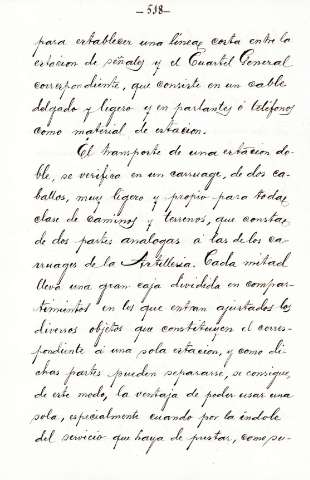 -538-
para establecer una linea corta entre la
estacion de señales y el Cuartel General
correspondiente, que consiste en un cable
delgado y ligero y en parlantes ó teléfonos
como material de estacion.
El transporte de una estacion do-
ble, se verifica en un carruage, de dos ca-
ballos, muy ligero y propio para todas
clase de caminos y terrenos, que consta
de dos partes analogas á las de los ca-
rruages de la Artilleria. Cada mitad
lleva una gran caja dividida en compar-
timientos en los que entran ajustados los
diversos objetos que constituyen el corres-
pondiente á una sola estacion, y como di-
chas partes pueden separarse, se consigue,
de este modo, la ventaja de poder usar una
sola, especialmente cuando por la índole
del servicio que haya de prestar, como su-